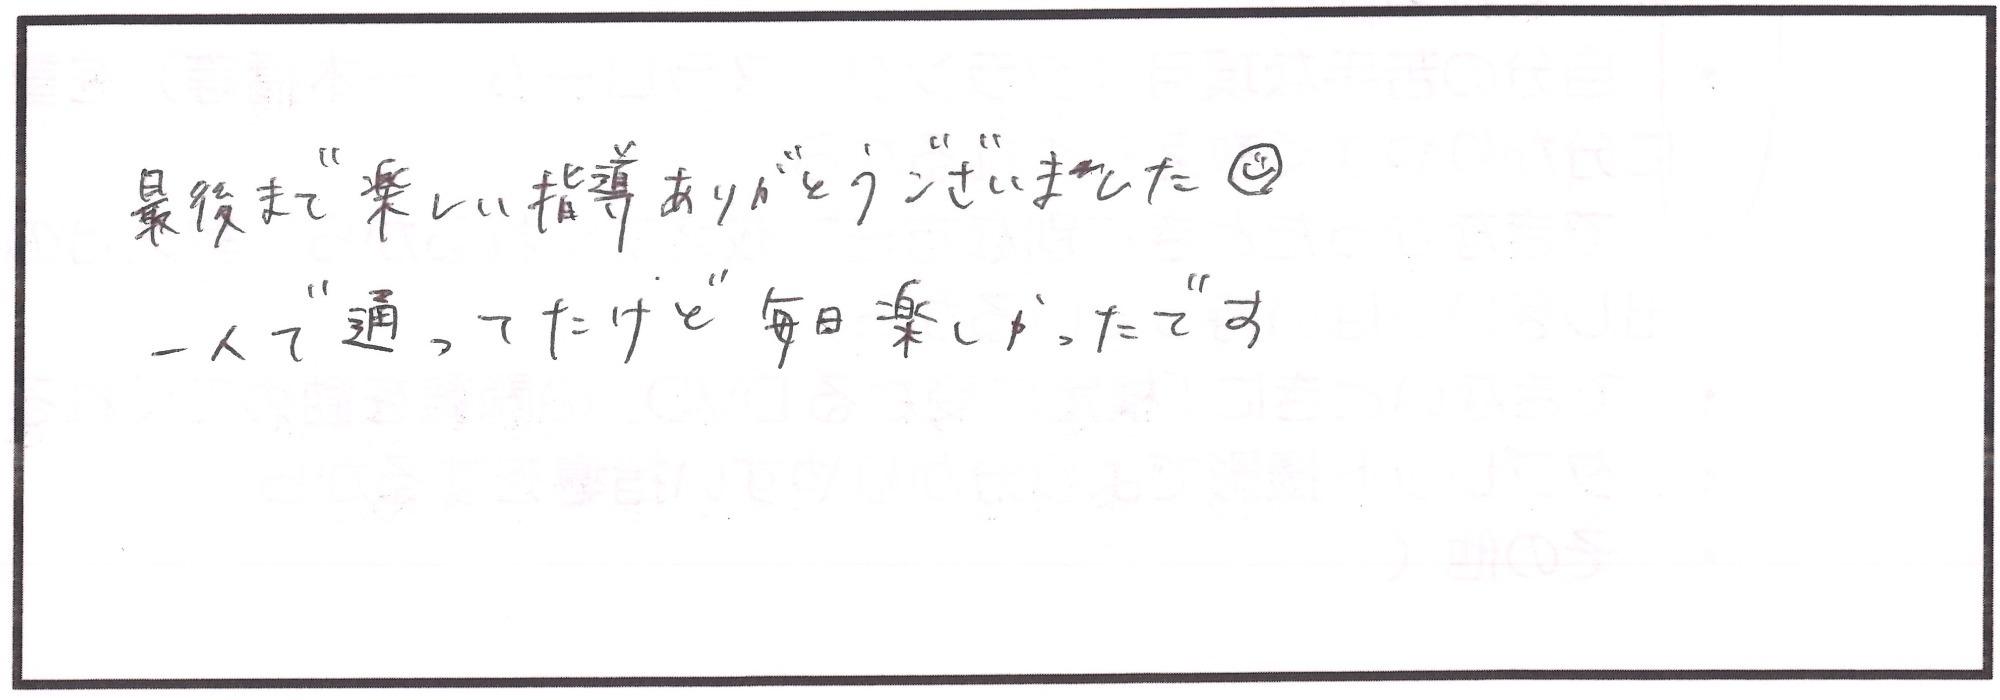 最後まで楽しい指導ありがとうございました☺
一人で通ってたけど毎日楽しかったです